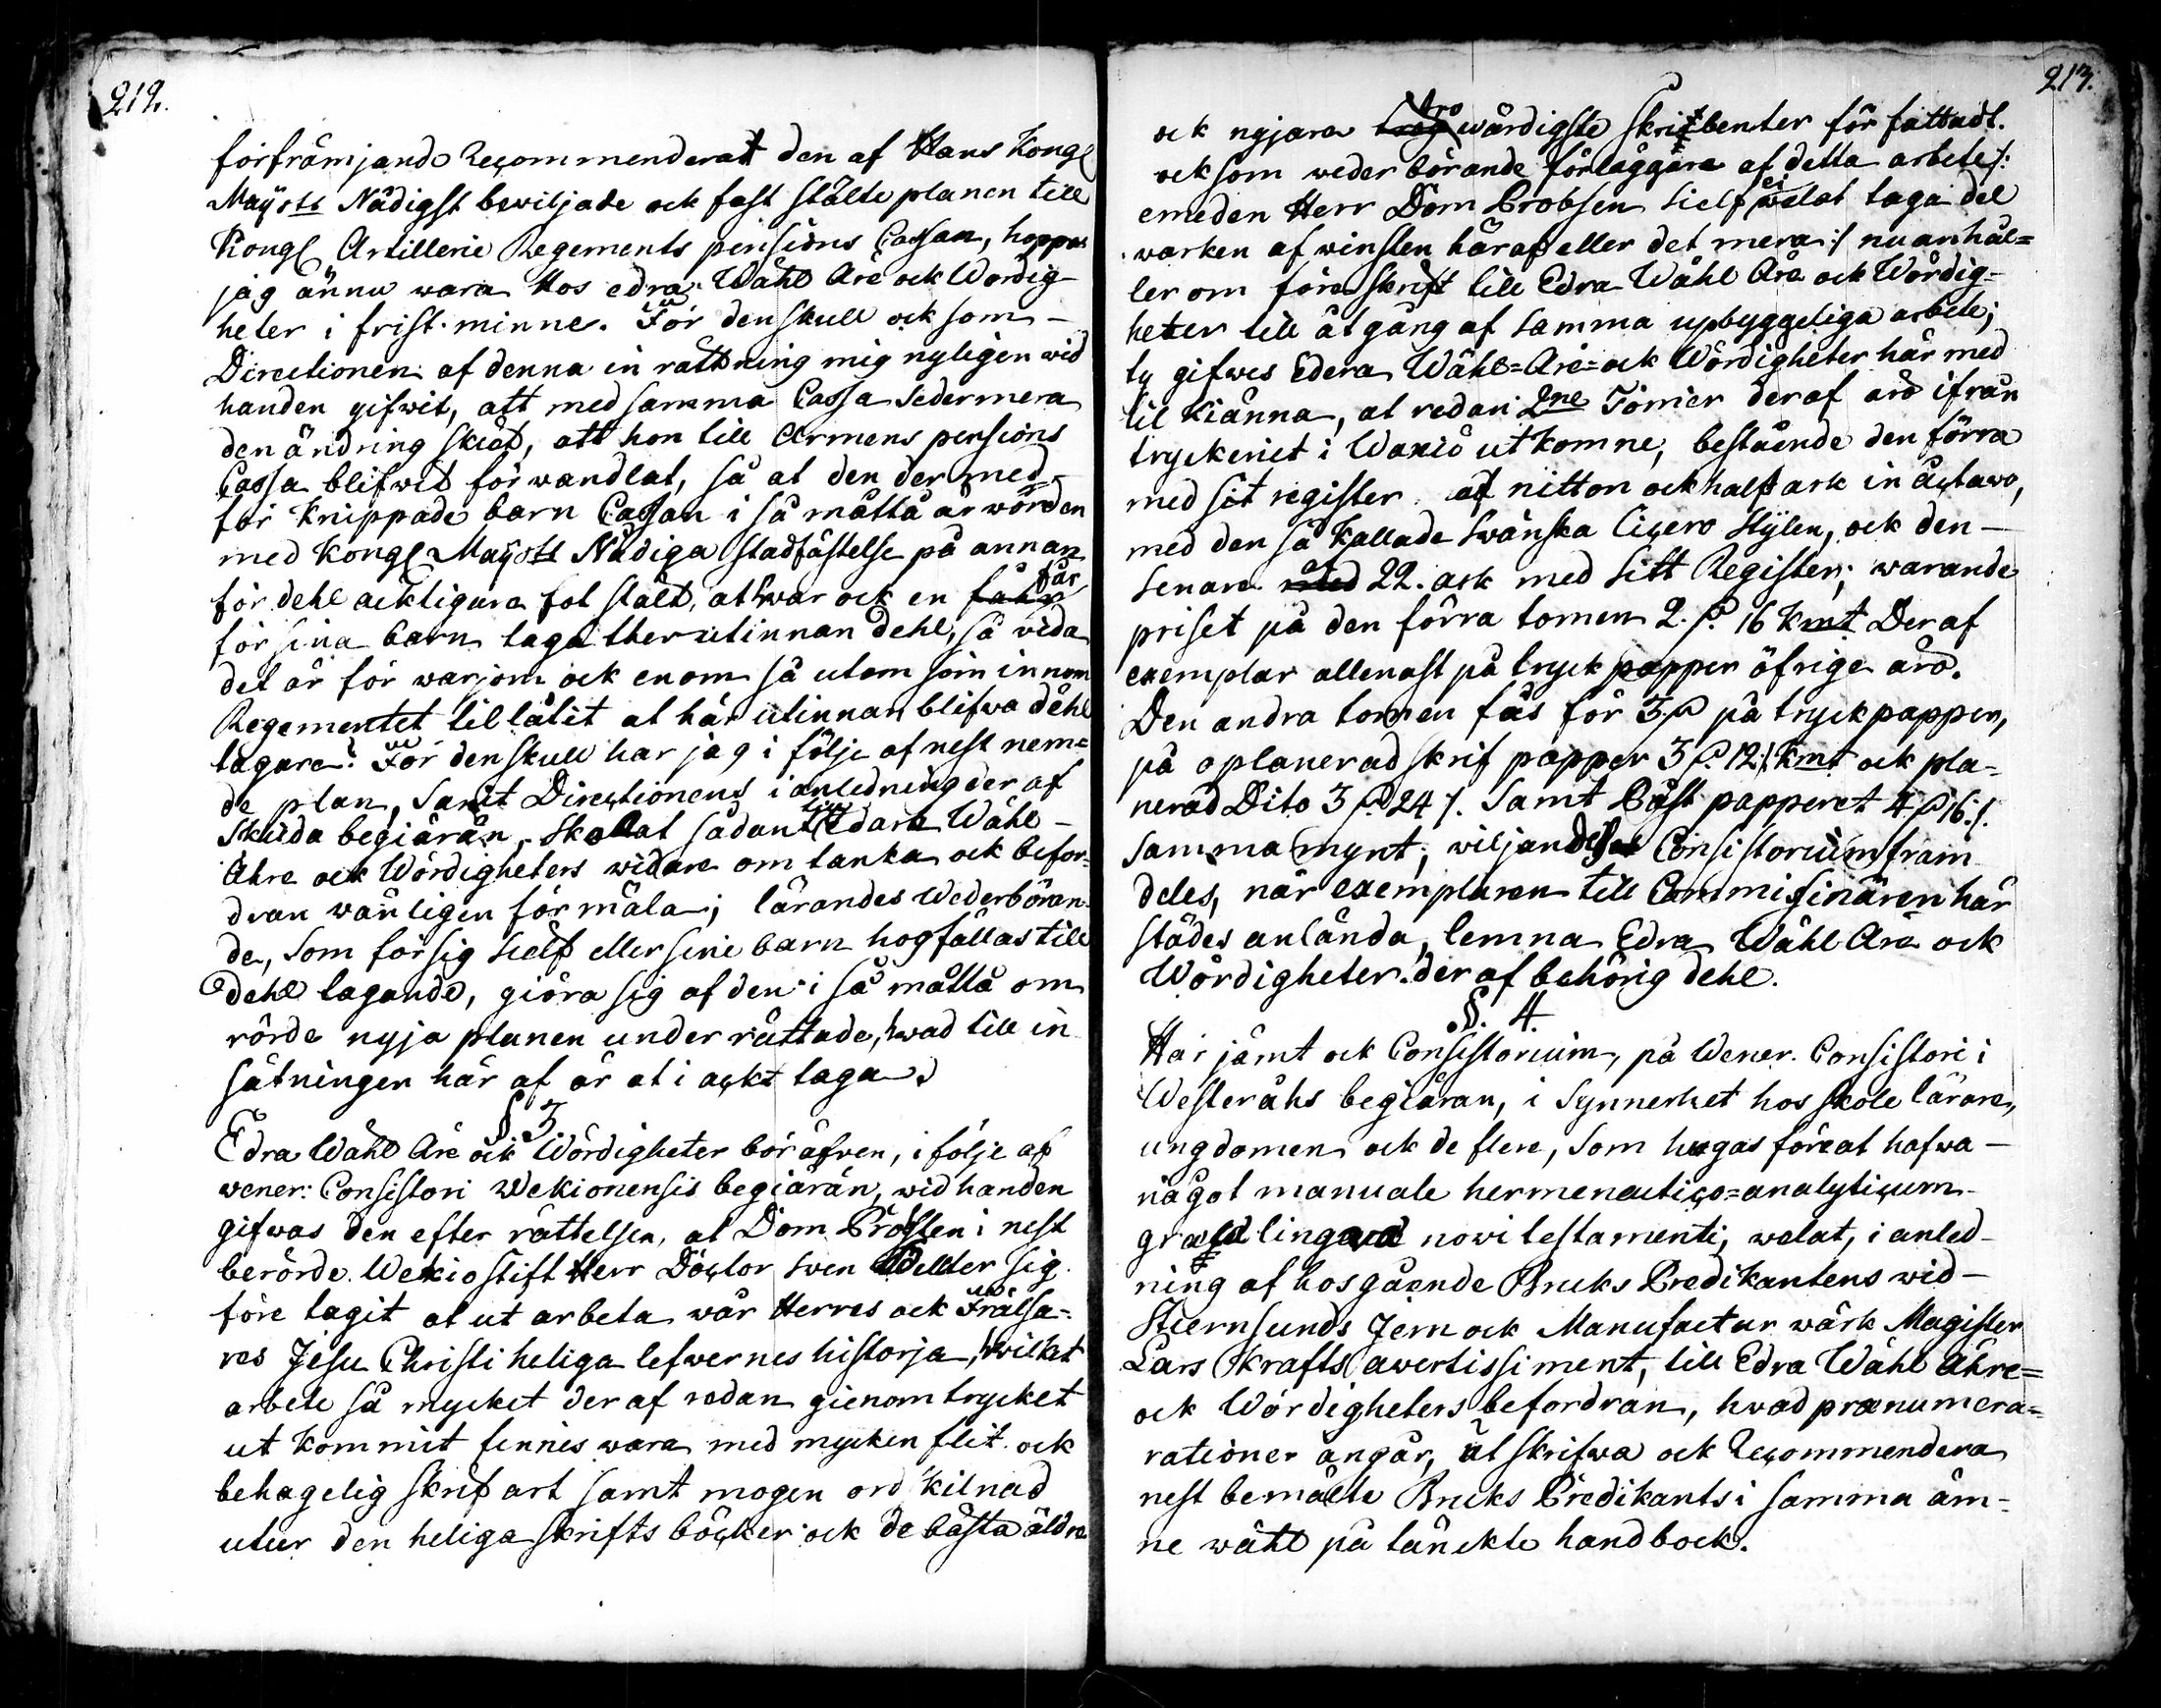 212.
förfrämjande Recommenderat den af Hans Kongl
Maÿsts Nådigst bewiljade ock fast stälte planen till
Kongl Artillerie Regements pensions Cassan, hoppas
jag ännu wara Hos edra Wähl Äre ock Wördig
heter i frist minne. För den skull ock som –
Directionen af denna in rättning mig nyligen wid
handen gifwit, att med samma Cassa Sedermera
den ändring skiät, att hon till Armens pensions
Cassa blifwit förwandlat, så at den der med
för Knippade barn Cassan i så mätta är wörden
med Kongl Maÿsts Nådiga stadfästelse på annan
för dehl acktigare fot stält, at hwar ock en får
för sina barn taga ther utinnan dehl, så vida
det är för warjom ock enom så utom som innom
Regementet tillåtit at här utinnan blifwa dehl
tagare. För den skull har jag i följe af nest nem=
de plan, samt Directionens i anledning der af
skiida begiäran, skolat sådant till Edara Wähl –
Ähre ock Wördigheters widare om tanka ock befor=
dran wänligen för mäla; lärandes Wederbören
de, som för sig sielf eller sine barn hogfällas till
dehl tagande, giöra sig af den i så mätta om
rörde nyja planen under rättade, hwad till in
sätningen här af är at i ackt taga.
§ 3.
Edra Wähl Äre ock Wördigheter bör äfven, i följe af
vener: Consistori Wekionensis begiäran, wid handen
gifwas den efter rättelsen, at Dom Prosten i nest
berörde Wekio stift Herr Doctor Swen Wellter sig
före tagit at ut arbeta wår Herres ock Frälsa=
res Jesu Christi heliga lefwernes historja, hwilket
arbete så mycket der af redan gienom trycket
ut kommit finnes wara med mycken flit ock
behagelig skrif art samt mogen ord kilnad
utur den heliga skrifts böcker ock de bästa äldre
213.
ock nyjare tro wärdigste skribenter för fattadt.
ock som weder börande förläggare af detta arbete /:
emeden Herr Dom Probsen sielf ei welat taga del
warken af winsten häraf eller det mera :/ nu anhål=
ler om före skrift till Edra Wähl Äre ock Wördig=
heter till åtgång af samma upbyggeliga arbete;
ty gifwes Edera Wähl=Äre= ock Wördigheter här med
til Kiänna, at redan 2ne Tomer deraf äro ifrån
tryckeriet i Waxiö ut komne, bestående den förra
med sit register af nitton ock half ark in Octawo,
med den så kallade Swänska Cicero Stylen, ock den –
senare 22. ark med sitt Register; warande
priset på den förra tomen 2. 16 Kmt Deraf
exemplar allenast på tryck papper öfrige äro.
Den andra tomen fås för 3 på tryckpapper,
på oplanerad skrif papper 3 12 Kmt ock pla=
nerad Dito 3 24 /. Samt Post papperet 4 16 /.
samma mynt; wiljandes Consistorium fram
deles, när exemplaren till Commissinären här
städes anlända, lemna Edra Wähl Äre ock
Wördigheter der af behörig dehl.
§. 4.
Har jämt ock Consistorium, på Wener. Consistori i
Westeråhs begiäran, i Synnerhet hos skole lärare,
ungdomen ock de flere, som hugas före at hafwa –
något manuale hermeneutico=analyticum
græd lingvæ nowi testamenti, welat, i anled=
ning af hosgående Bruks Predikantens wid –
Stiernsunds Jern ock Manufactur wärk Magister
Lars Krafts awertissiment, till Edra Wähl Ähre=
ock Wördigheters befordran, hwad prænumera=
rationer angår, åt skrifwa ock Recommendera
nest bemälte Bruks Predikants i samma äm=
ne wähl på tänckte handbock.